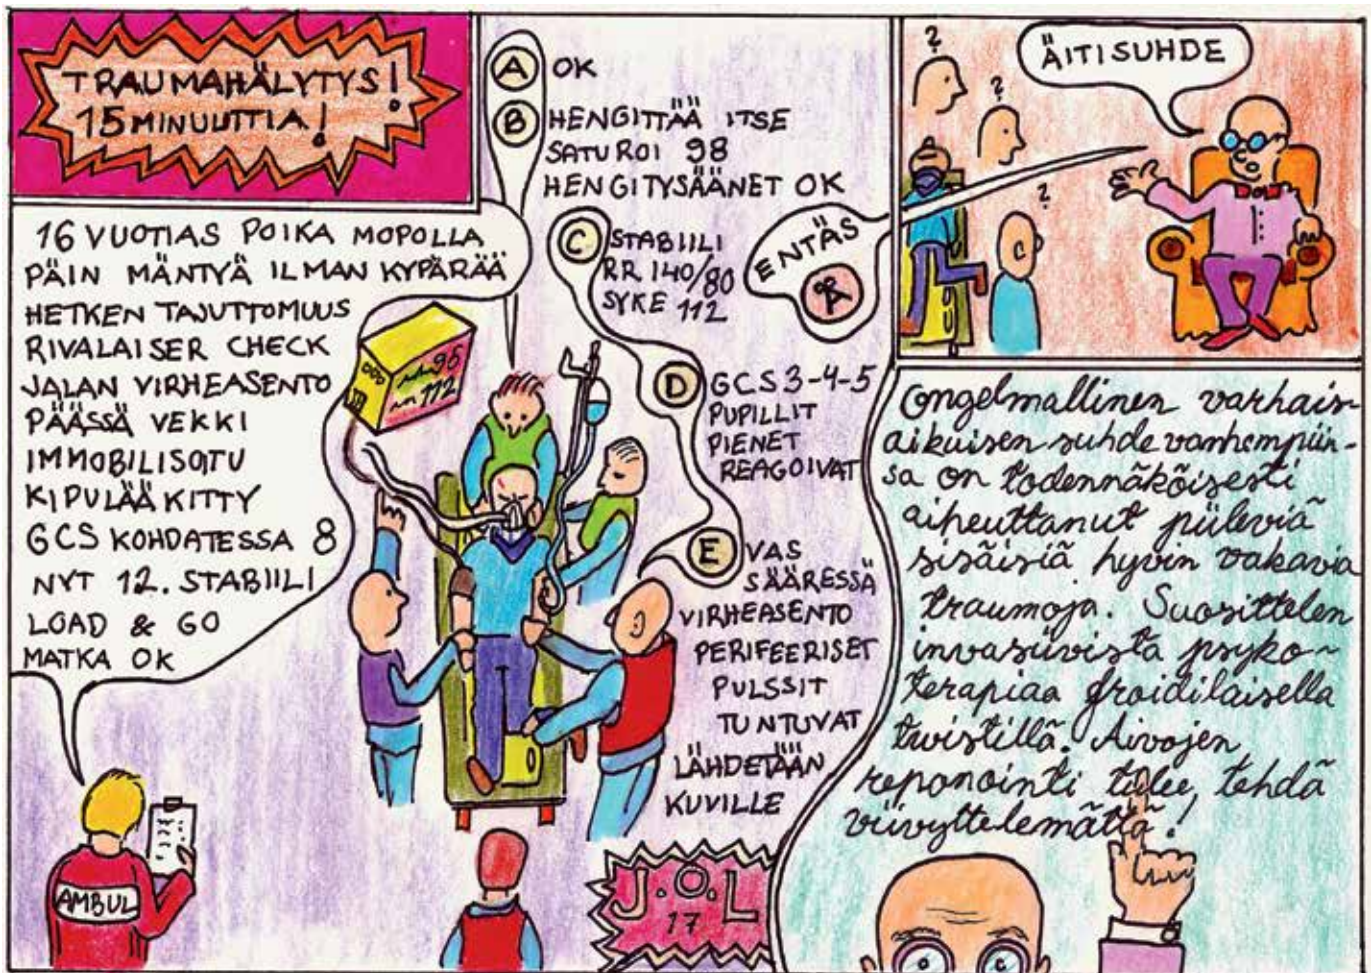 TRAUMAHÄLYTYS!
15 MINUUTTIA!
16 VUOTIAS POIKA MOPOLLA
PÄIN MÄNTYÄ ILMAN KYPÄRÄÄ
HETKEN TAJUTTOMUUS
RIVALAISER CHECK
JALAN VIRHEASENTO
PÄÄSSÄ VEKKI
IMMOBILISOTU
KIPULÄÄKITTY
GCS KOHDATESSA 8
NYT 12. STABIILI
LOAD & GO
MATKA OK
AMBUL
95
112
A OK
B HENGITTÄÄ ITSE
SATUROI 98
HENGITYSÄÄNET OK
C STABIILI
RR 140/80
SYKE 112
D GCS 3-4-5
PUPILLIT
PIENET
REAGOIVAT
E VAS
SÄÄRESSÄ
VIRHEASENTO
PERIFEERISET
PULSSIT
TUNTUVAT
LÄHDETÄÄN
KUVILLE
J.O.L
17
ENTÄS
Ä
? ? ?
ÄITISUHDE
Ongelmallinen varhais-
aikuisen suhde vanhempiin-
sa on todennäköisesti
aiheuttanut piileviä
sisäisiä hyvin vakavia
traumoja. Suosittelen
invasiivista psyko-
terapiaa froidilaisella
twistillä. Aivojen
reponointi tulee tehdä
viivyttelemättä!